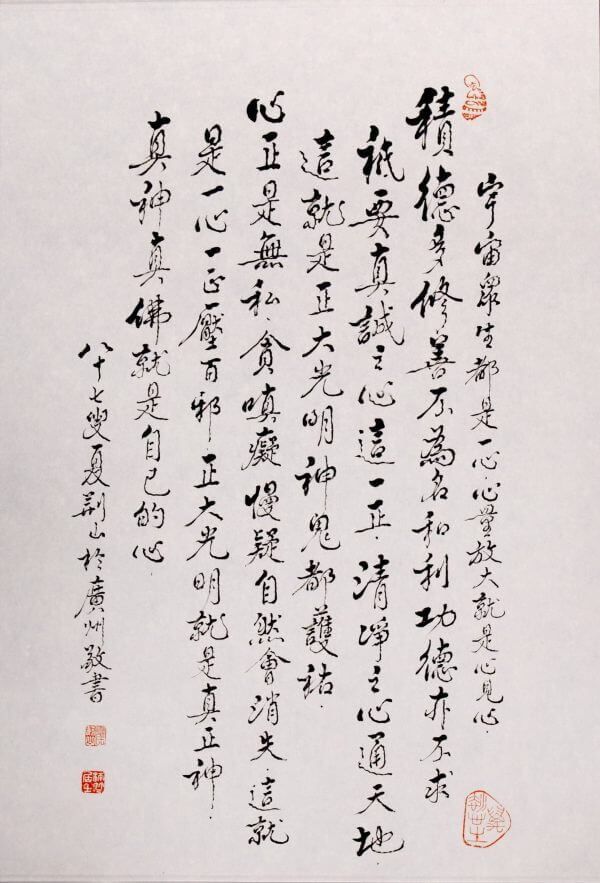 宇宙眾生都是一心心量放大就是心見心
積德多修善不為名和利功德亦不求
祇要真誠之心這一正清淨之心通天地
這就是正大光明神鬼都護祐
心正是無私貪嗔癡慢疑自然會消失這就
是一心一正壓百邪正大光明就是真正神
真神真佛就是自己的心
八十七叟夏荆山於廣州敬書